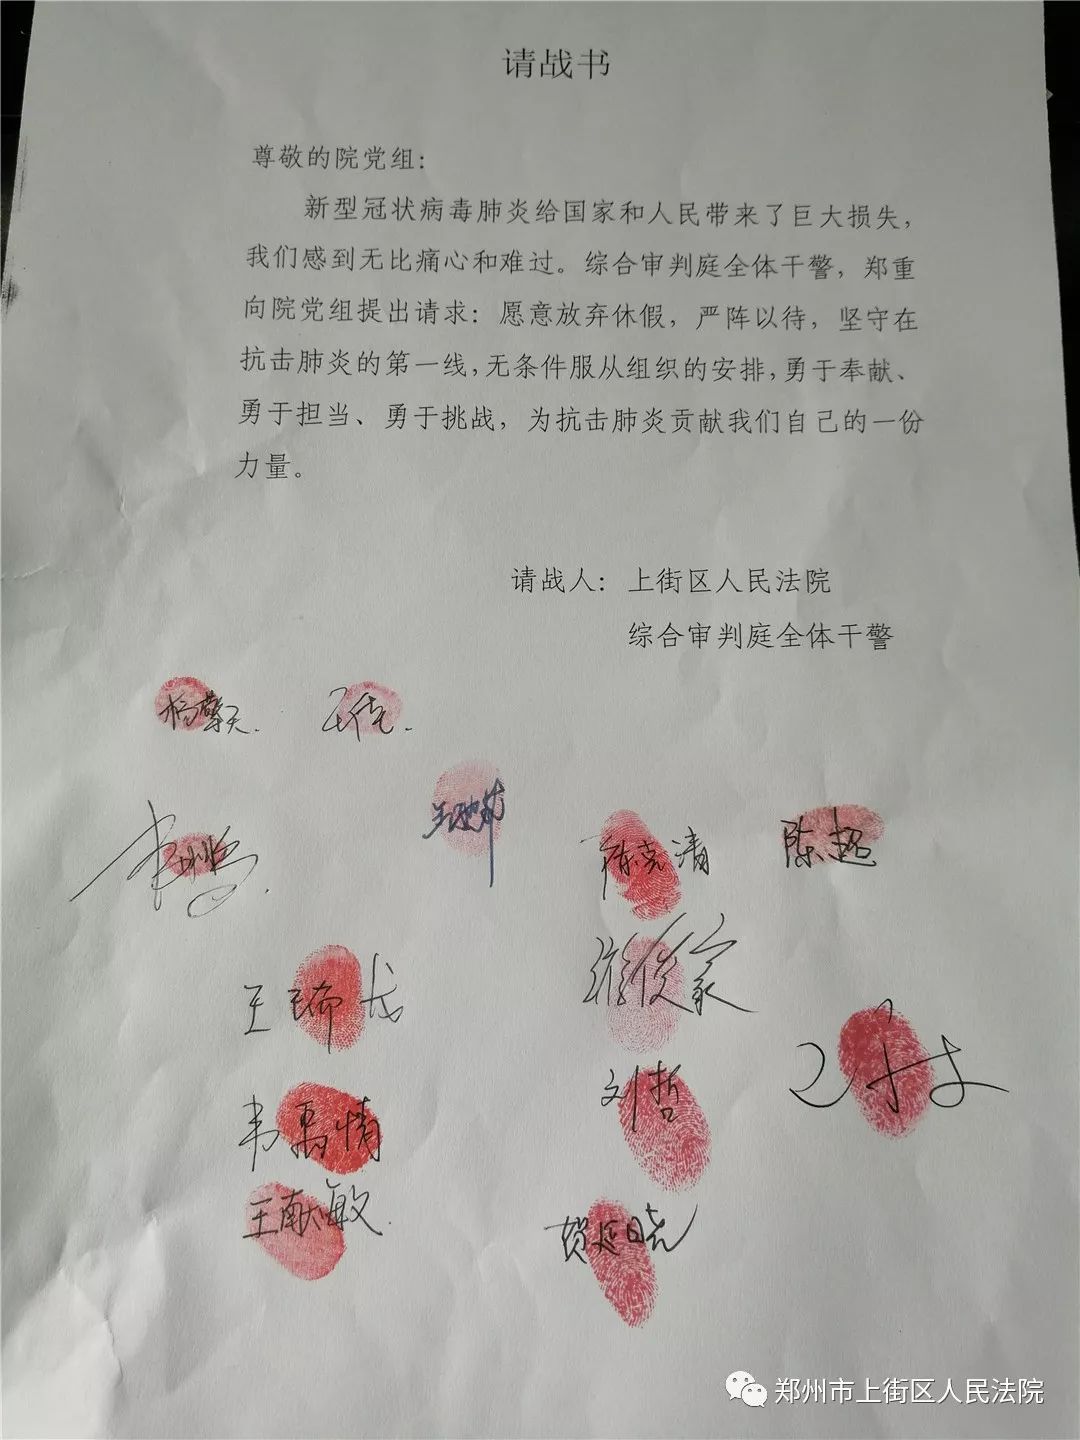 请战书
尊敬的院党组：
新型冠状病毒肺炎给国家和人民带来了巨大损失，
我们感到无比痛心和难过。综合审判庭全体干警，郑重
向院党组提出请求：愿意放弃休假，严阵以待，坚守在
抗击肺炎的第一线，无条件服从组织的安排，勇于奉献、
勇于担当、勇于挑战，为抗击肺炎贡献我们自己的一份
力量。
请战人：上街区人民法院
综合审判庭全体干警
杨擎天.
陈克清 陈超
刘哲
王献敏.
贺延晓
郑州市上街区人民法院